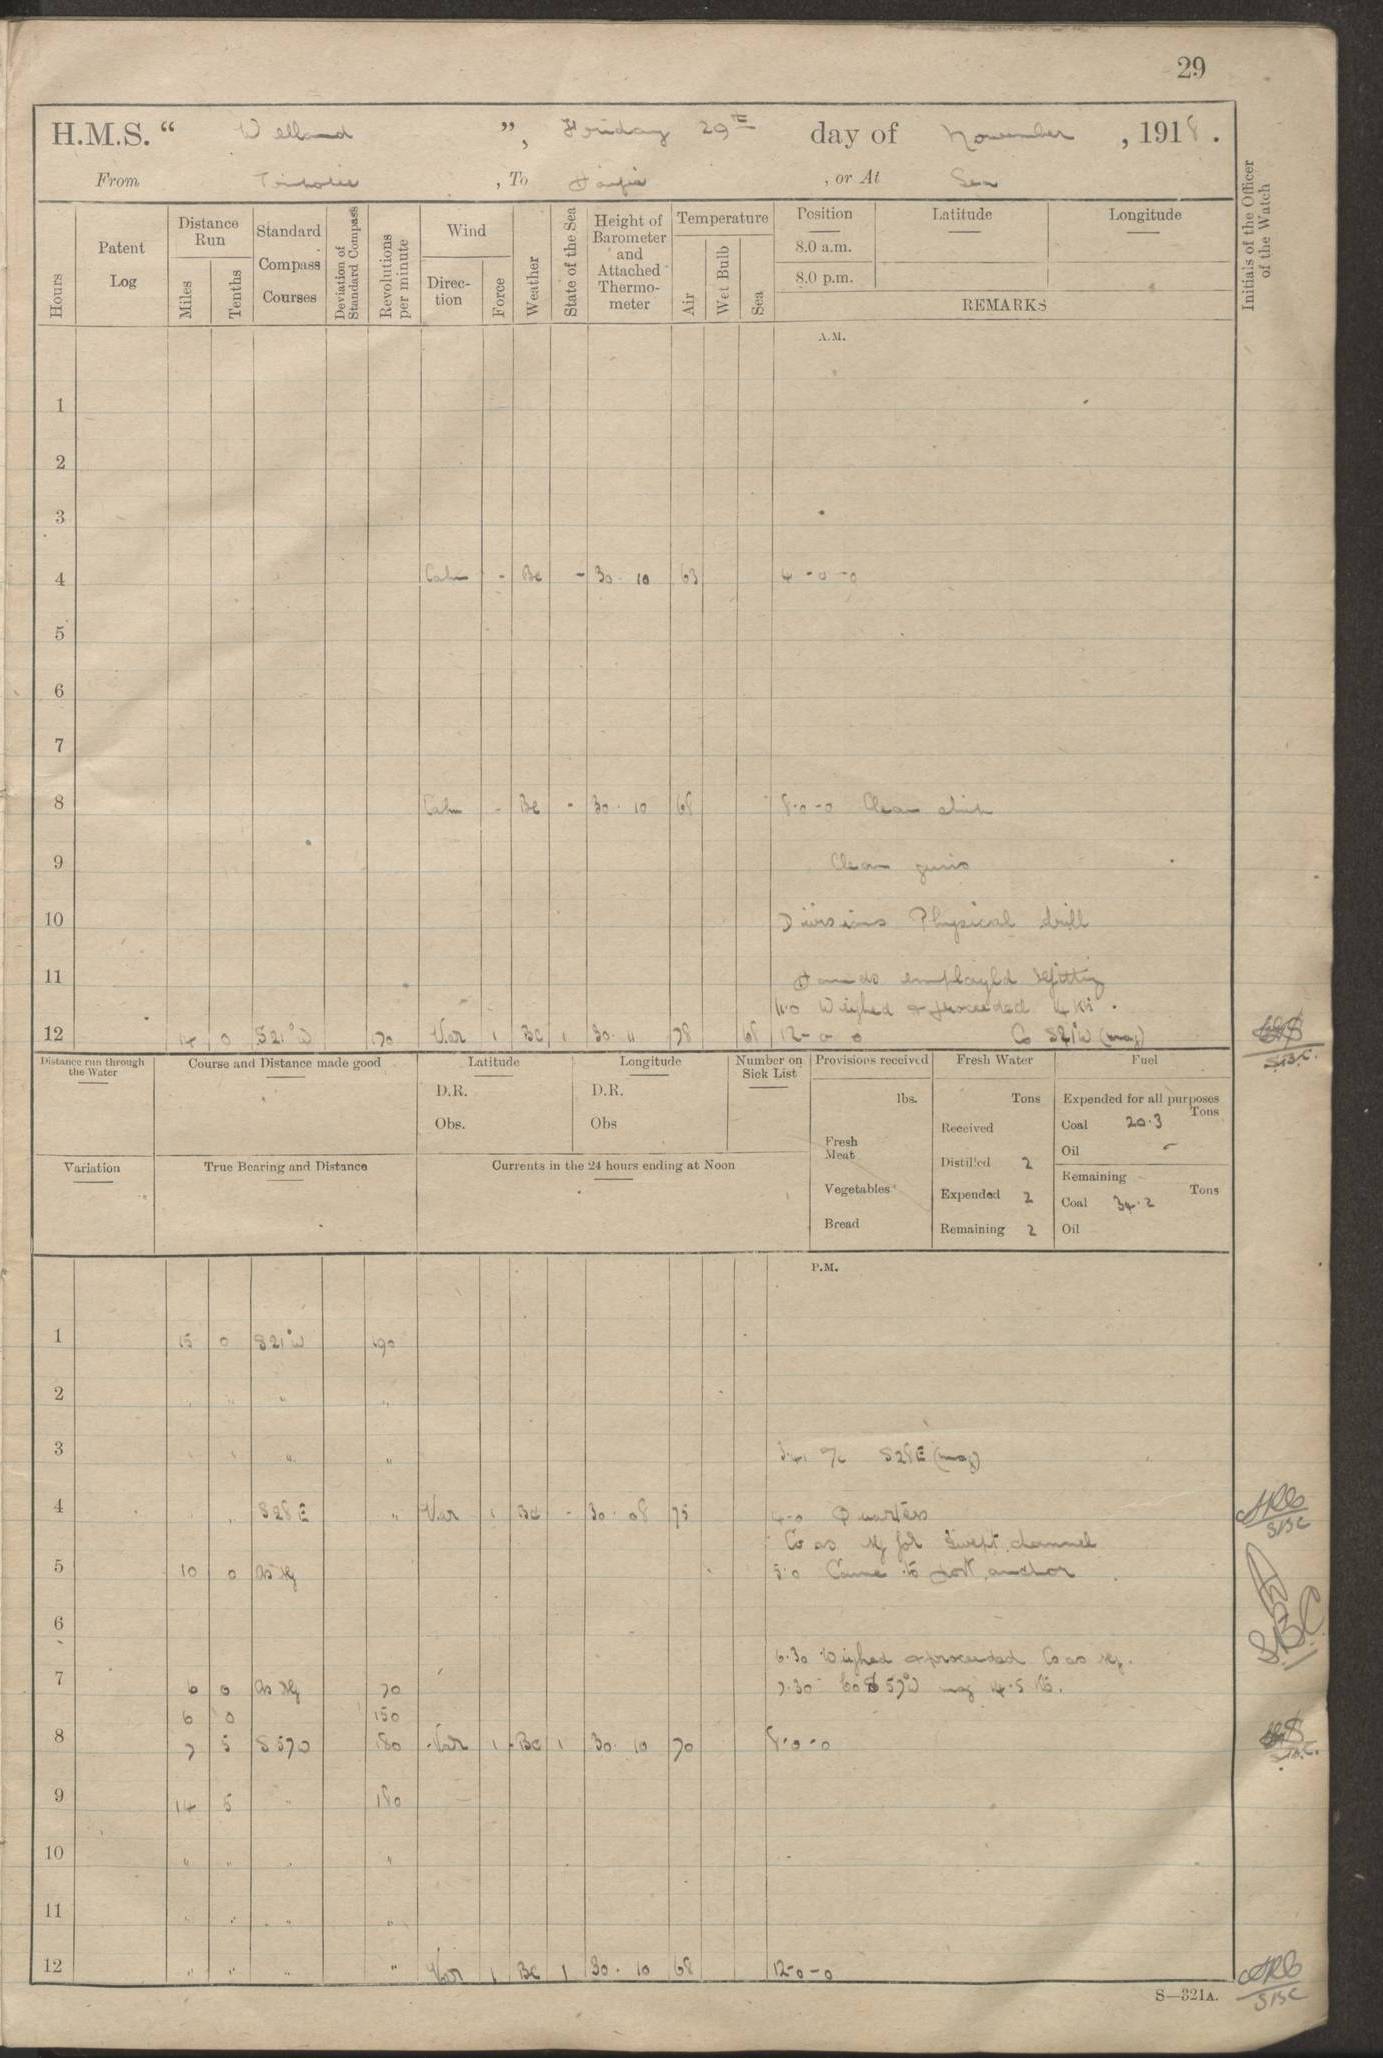 29
H.M.S. “ Welland ”, Friday 29th day of November , 1918 .
From , To , or At Sea
Hours
Patent Log
Distance Run
Miles
Tenths
Standard Compass Courses
Deviation of Standard Compass
Revolutions per minute
Wind
Direction
Force
Weather
State of the Sea
Height of Barometer and Attached Thermometer
Temperature
Air
Wet Bulb
Sea
Position
8.0 a.m.
8.0 p.m.
Latitude
Longitude
REMARKS
Initials of the Officer of the Watch
A.M.
1
2
3
4 Calm - Bc - 30·10 63 4-0-0
5
6
7
8 Calm - Bc - 30·10 68 8·0-0 Clean ship
9 Clean guns
10 Divisions Physical drill
11 Hands employed refitting
11·0 Weighed & proceeded
12 14 0 S21°W 170 Var 1 Bc 1 30·11 78 68 12-0-0 Co S21°W (mag)
SBC.
Distance run through the Water
Course and Distance made good
Latitude
D.R.
Obs.
Longitude
D.R.
Obs
Number on Sick List
Provisions received
lbs.
Fresh Meat
Vegetables
Bread
Fresh Water
Tons
Received
Distilled 2
Expended 2
Remaining 2
Fuel
Expended for all purposes
Tons
Coal 20·3
Oil -
Remaining
Tons
Coal 34·2
Oil
Variation
True Bearing and Distance
Currents in the 24 hours ending at Noon
P.M.
1 15 0 S21°W 190
2 " " " "
3 " " " " a/c S28E (mag)
4 " " S28E " Var 1 Bc - 30·08 75 4-0 Quarters
SBC
Co as req for swept channel
5 10 0 as req 5·0 Came to port anchor
6
S.B.C.
6·30 Weighed & proceeded Co as req.
7 6 0 as req 70 7·30 Co S57°W mag
6 0 150
8 7 5 180 Var 1 Bc 1 30·10 70 8·0-0
9 14 5 " 180
10 " " " "
11 " " " "
12 " " " " Var 1 Bc 1 30·10 68 12-0-0
SBC
S—321A.